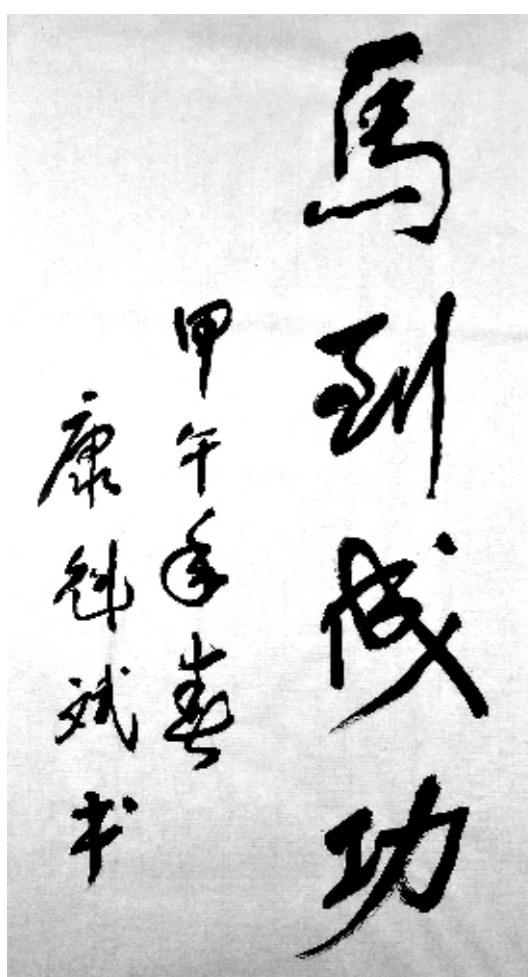 馬到成功
甲午年春
康魁斌书